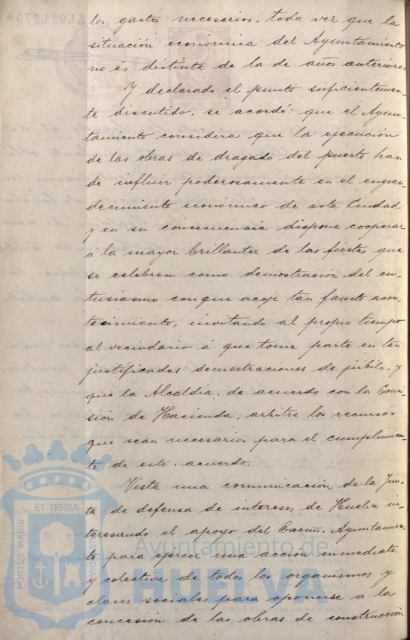 los gastos necesarios, toda vez que la
situación económica del Ayuntamiento
no es distinta de la de años anteriores
Y declarado el punto suficientemen-
te discutido, se acordó: que el Ayun-
tamiento considera que la ejecución
de las obras de dragado del puerto han
de influir poderosamente en el engran-
decimiento económico de esta Ciudad
y en su consecuencia dispone cooperar
á la mayor brillantez de las fiestas que
se celebren como demostración del en-
tusiasmo con que acoje tan fausto acon-
tecimiento, invitando al propio tiempo
al vecindario á que tome parte en tan
justificadas demostraciones de júbilo, y
que la Alcaldía, de acuerdo con la Comi-
sión de Hacienda, arbitre los recursos
que sean necesarios para el cumplimien-
to de este acuerdo.
Vista una comunicación de la Jun-
ta de defensa de intereses de Huelva in-
teresando el apoyo del Excmo. Ayuntamien-
to para ejercer una acción inmediata
y colectiva de todos los organismos y
clases sociales para oponerse a la
concesión de las obras de construcción
Ayuntamiento de
HUELVA
PORTUS MARIS
ET TERRAE